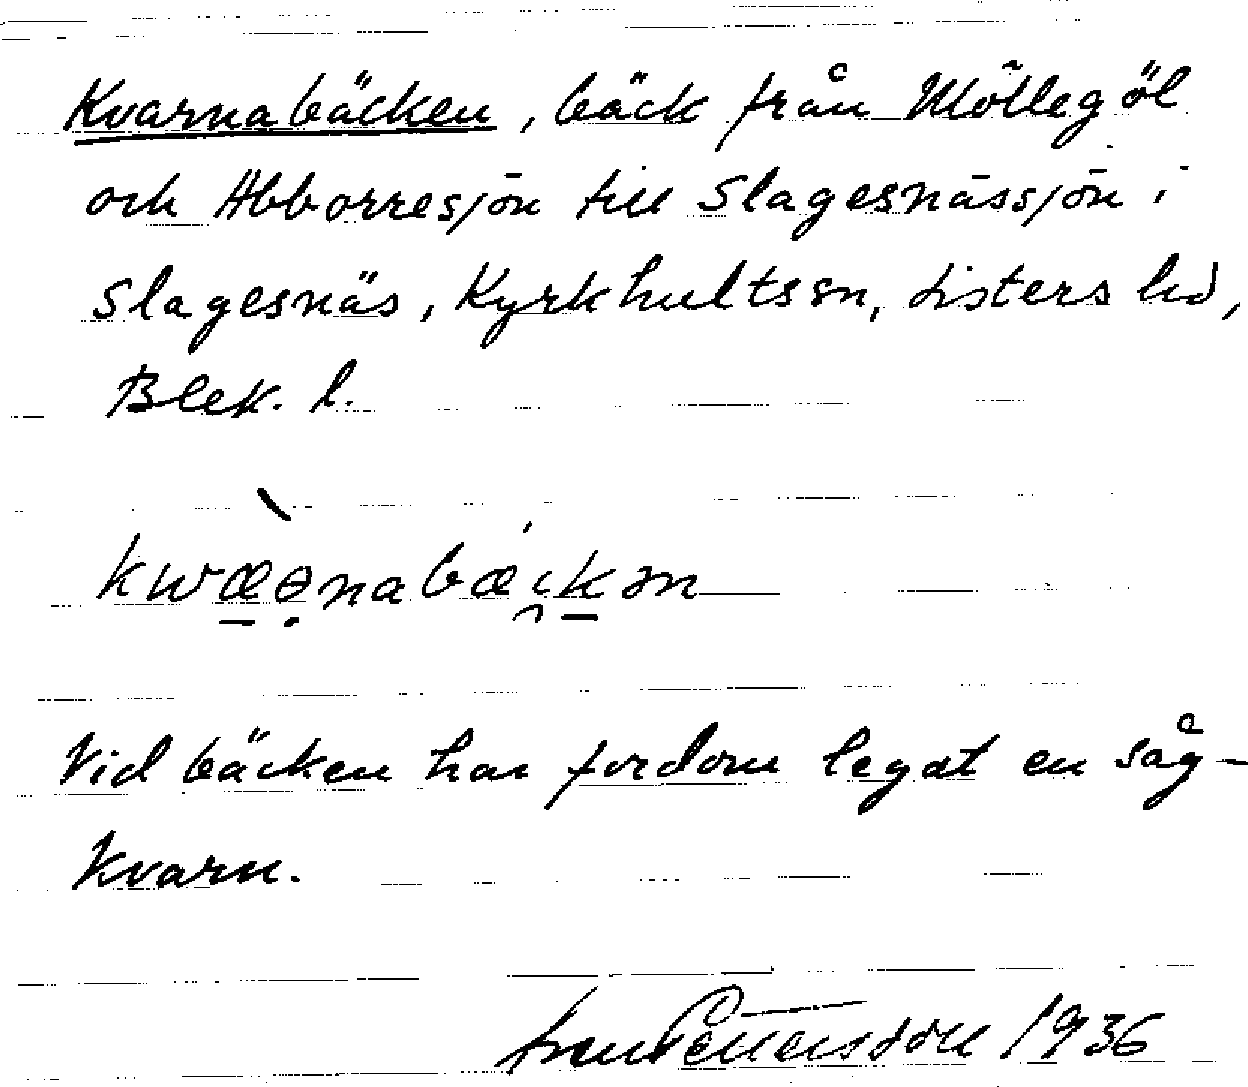 Kvarnabäcken, bäck från Möllegöl
och Abborresjön till Slagesnässjön i
Slagesnäs, Kyrkhults sn, Listers hd,
Blek. l.
kwæənabæckən
Vid bäcken har fordom legat en såg-
kvarn.
Pettersson 1936